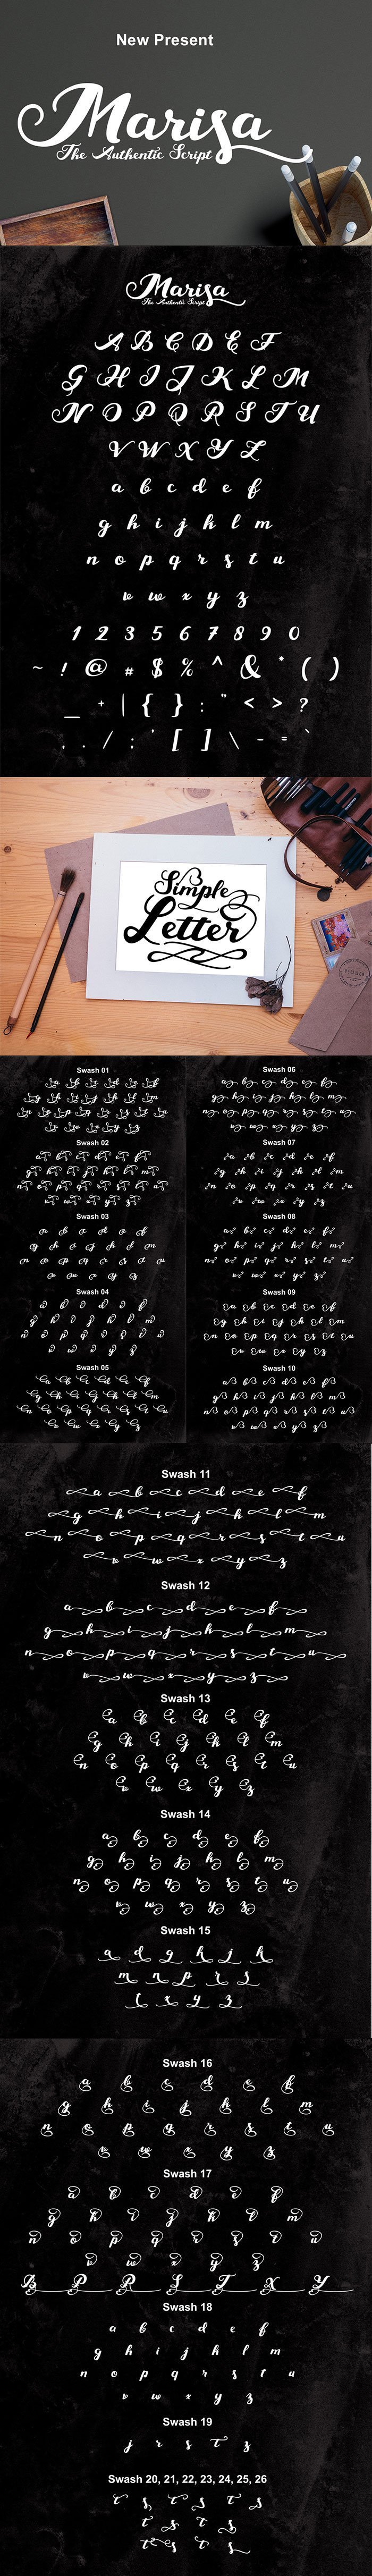 New Present
Marisa
The Authentic Script
Marisa
The Authentic Script
A B C D E F
G H I J K L M
N O P Q R S T U
V W X Y Z
a b c d e f
g h i j k l m
n o p q r s t u
v w x y z
1 2 3 5 6 7 8 9 0
~ ! @ # $ % ^ & * ( )
_ + | { } : " < > ?
, . / ; ' [ ] \ - = `
Simple
Letter
Swash 01
a b c d e f
g h i j k l m
n o p q r s t u
v w x y z
Swash 02
a b c d e f
g h i j k l m
n o p q r s t u
v w x y z
Swash 03
a b c d e f
g h i j k l m
n o p q r s t u
v w x y z
Swash 04
a b c d e f
g h i j k l m
n o p q r s t u
v w x y z
Swash 05
a b c d e f
g h i j k l m
n o p q r s t u
v w x y z
Swash 06
a b c d e f
g h i j k l m
n o p q r s t u
v w x y z
Swash 07
a b c d e f
g h i j k l m
n o p q r s t u
v w x y z
Swash 08
a b c d e f
g h i j k l m
n o p q r s t u
v w x y z
Swash 09
a b c d e f
g h i j k l m
n o p q r s t u
v w x y z
Swash 10
a b c d e f
g h i j k l m
n o p q r s t u
v w x y z
Swash 11
a b c d e f
g h i j k l m
n o p q r s t u
v w x y z
Swash 12
a b c d e f
g h i j k l m
n o p q r s t u
v w x y z
Swash 13
a b c d e f
g h i j k l m
n o p q r s t u
v w x y z
Swash 14
a b c d e f
g h i j k l m
n o p q r s t u
v w x y z
Swash 15
a d g h j k
m n p r s
t x y z
Swash 16
a b c d e f
g h i j k l m
n o p q r s t u
v w x y z
Swash 17
a b c d e f
g h i j k l m
n o p q r s t u
v w x y z
B P R S T X Y
Swash 18
a b c d e f
g h i j k l m
n o p q r s t u
v w x y z
Swash 19
j r s t z
Swash 20, 21, 22, 23, 24, 25, 26
t s t s t s
t s t s
t s t s